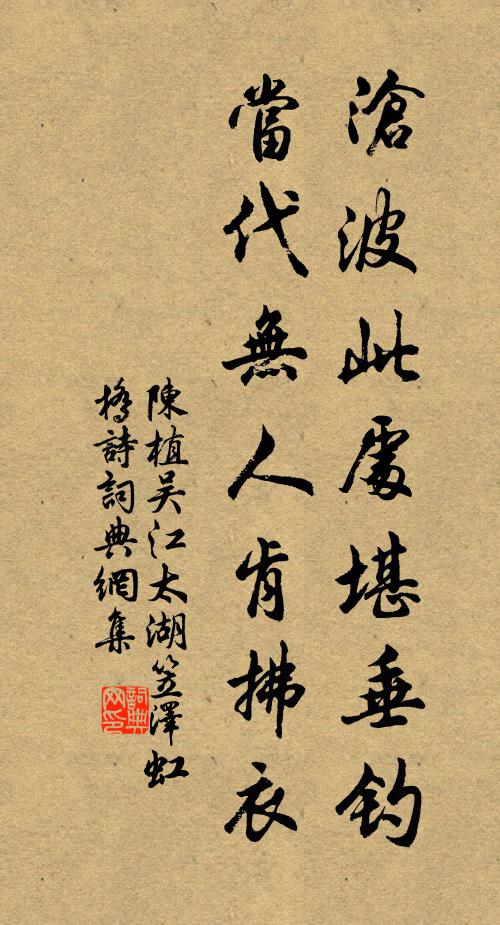 滄波此處堪垂釣
當代無人肯拂衣
陳植吴江太湖笠澤虹
橋詩詞典網集
詞典
网印